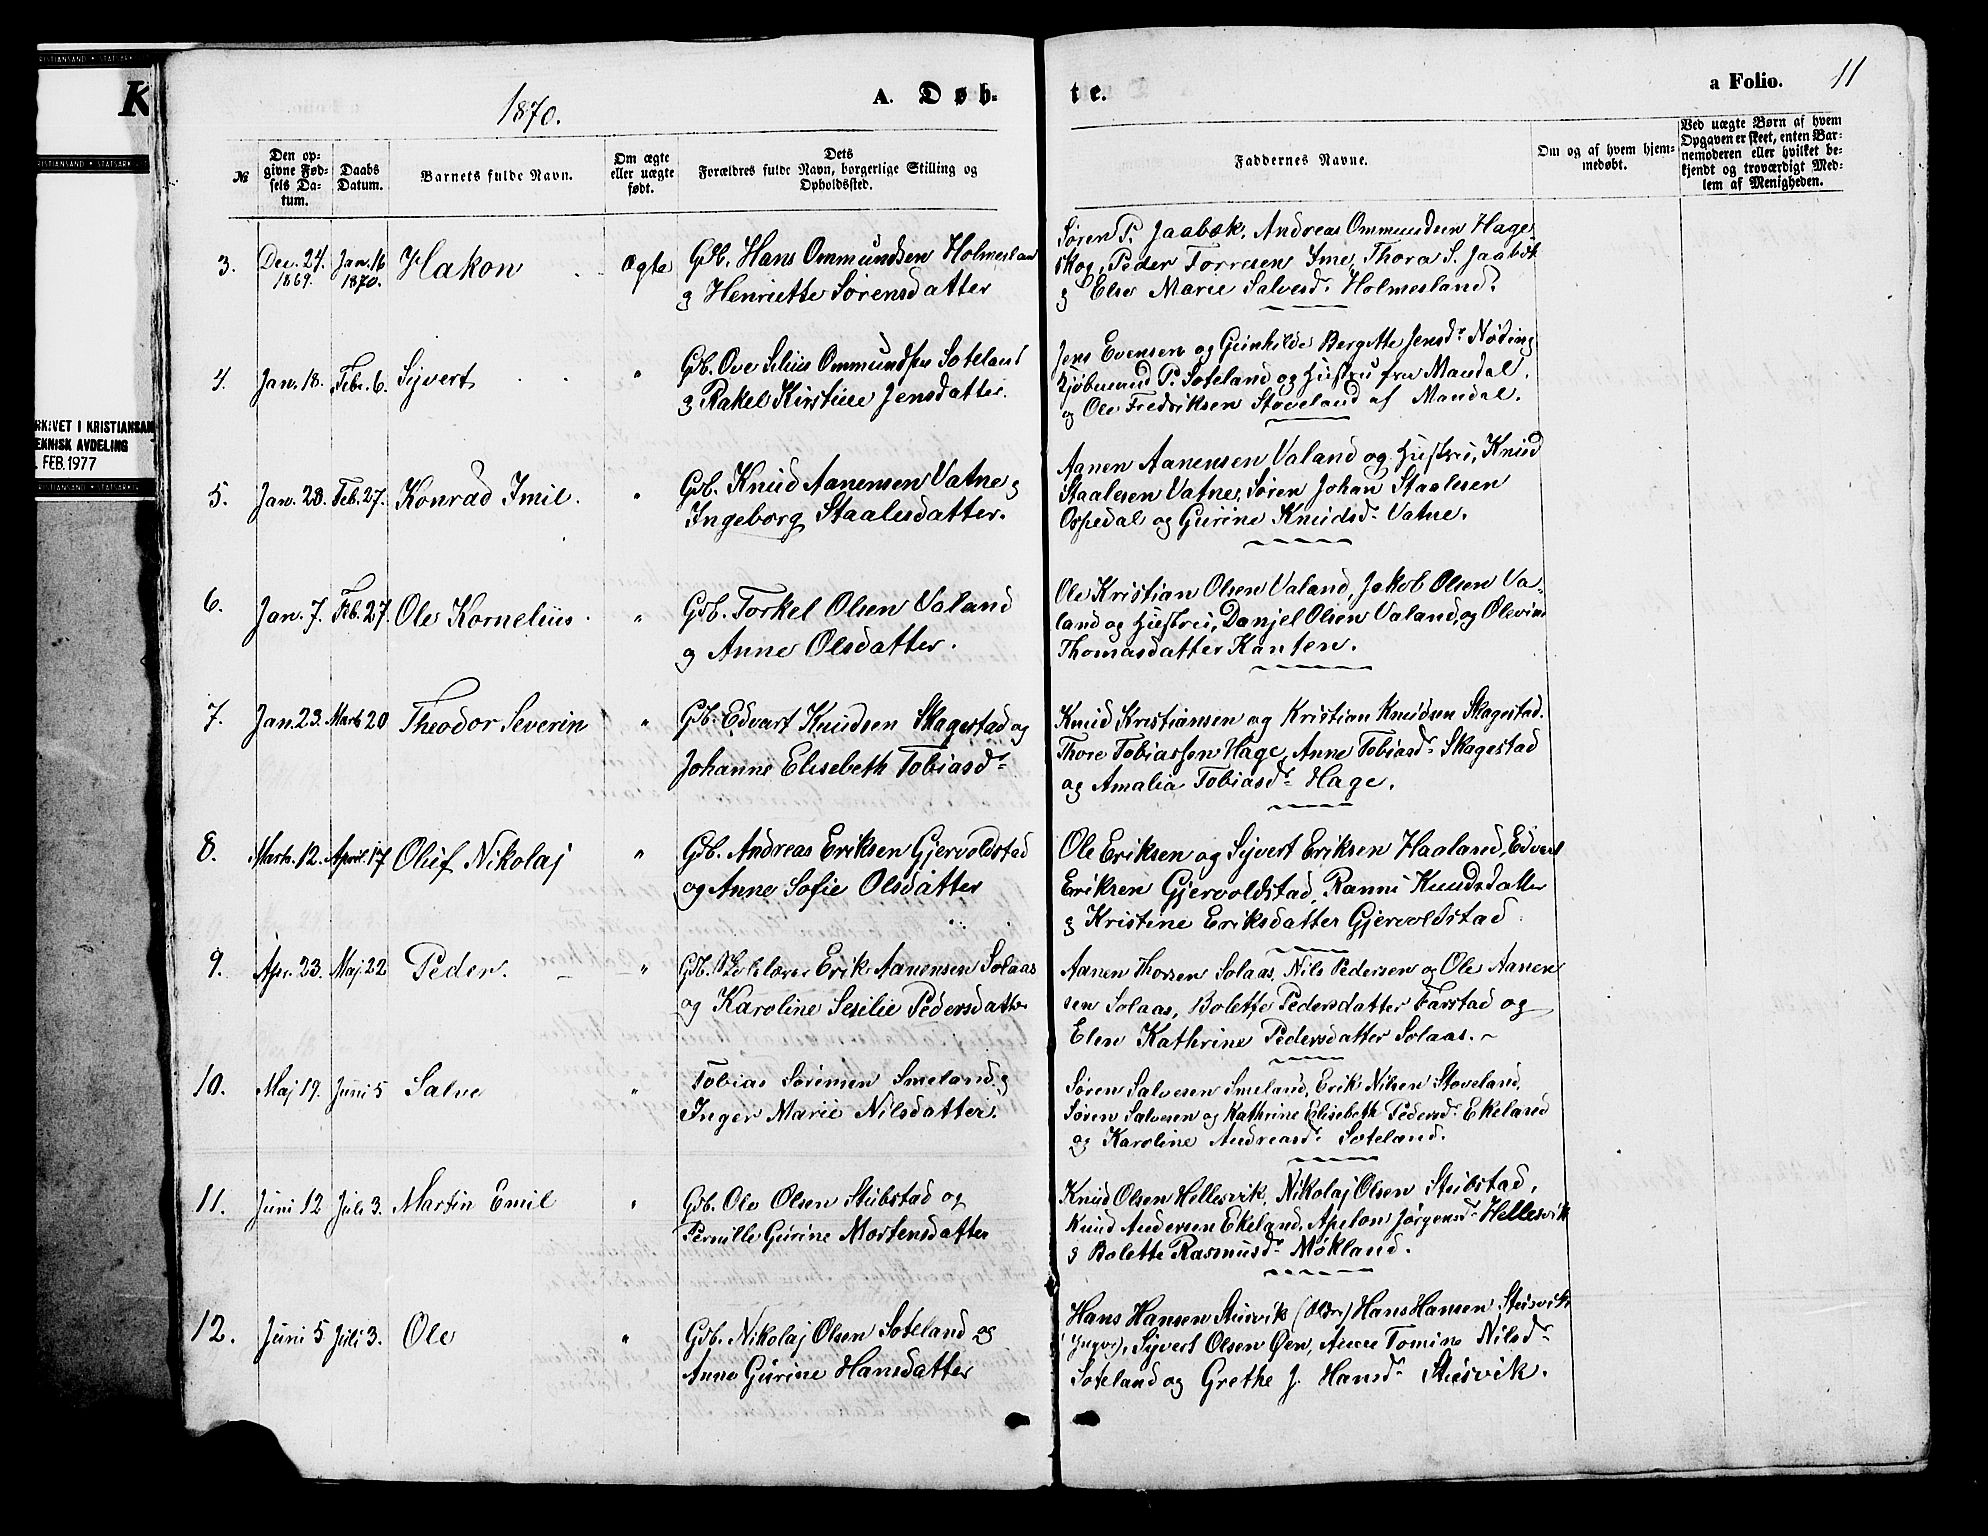 RISTIANSAND • STATSARK
K
RISTIANSAND • STATSARK
RKIVET I KRISTIANSAN
EKNISK AVDELING
. FEB. 1977
RISTIANSAND • STATSARK
1870.
A. Døb-
te.
a Folio. 11
№
Den op-
givne Fød-
sels Da-
tum.
Daabs
Datum.
Barnets fulde Navn.
Om ægte
eller uægte
født.
Dets
Forældres fulde Navn, borgerlige Stilling og
Opholdssted.
Faddernes Navne.
Om og af hvem hjem-
medøbt.
Ved uægte Børn af hvem
Opgaven er skeet, enten Bar-
nemoderen eller hvilket be-
kjendt og troværdigt Med-
lem af Menigheden.
3. Dec. 24. 1869. Jan. 16 1870. Hakon Ægte
Gdb. Hans Ommundsen Holmesland
g Henriette Sørensdatter
Søren P. Jaabæk, Andreas Ommundsen Hage-
skog, Peder Torresen Ime, Thora S. Jaabæk
g Else Marie Salvesd. Holmesland.
4. Jan. 18. Febr. 6. Sijvert "
Gdb. Ove Ommundsen Soteland
g Rakel Kirstine Jensdatter.
Jens Evensen og Gunhilde Bergitte Jensdr Nøding
Kjøbmand P. Soteland og Hustru fra Mandal,
og Ole Fredriksen Støveland af Mandal.
5. Jan. 23. Feb. 27. Konrad Imil. "
Gdb. Knud Aanensen Vatne g
Ingeborg Staalesdatter.
Aanen Aanensen Valand og Hustru, Knud
Staalesen Vatne, Søren Johan Staalesen
Ospedal og Gurine Knudsd. Vatne.
6. Jan. 7. Feb. 27. Ole Kornelius. "
Gdb. Torkel Olsen Valand
g Anne Olsdatter.
Ole Kristian Olsen Valand, Jakob Olsen Va-
land og Hustru, Danjel Olsen Valand, og Olevine
Thomasdatter Kanten.
7. Jan. 23. Marts 20 Theodor Severin "
Gdb. Edvart Knudsen Skagestad og
Johanne Elisebeth Tobiasdr
Knud Kristiansen og Kristian Knudsen Skagestad.
Thore Tobiassen Hage, Anne Tobiasdr Skagestad
og Amalia Tobiasdr Hage.
8. Marts. 12. April. 17 Oluf Nikolaj "
Gdb. Andreas Eriksen Gjervoldstad
og Anne Sofie Olsdatter
Ole Eriksen og Sijvert Eriksen Haaland, Edvart
Eriksen Gjervoldstad, Ranni Knudsdatter
g Kristine Eriksdatter Gjervoldstad
9. Apr. 23. Maj. 22 Peder. "
Gdb. Skolelærer Erik Aanensen Solaas
og Karoline Sesilie Pedersdatter
Aanen Thorsen Solaas, Nils Pedersen og Ole Aanen
sen Solaas, Bolette Pedersdatter Farstad og
Elen Kathrine Pedersdatter Solaas. -
10. Maj 19. Juni 5 Salve "
Tobias Sørensen Smeland g
Inger Marie Nilsdatter.
Søren Salvesen Smeland, Erik Nilsen Støveland,
Søren Salvesen og Kathrine Elisebeth Pedersd. Ekeland
og Karoline Andreasd. Soteland.
11. Juni 12 Juli 3. Martin Emil "
Gdb. Ole Olsen Stubstad og
Pernille Gurine Mortensdatter
Knud Olsen Hellesvik, Nikolaj Olsen Stubstad,
Knud Andersen Ekeland, Apelon Jørgensdr Hellesvik
g Bolette Rasmusdr Møkland.
12. Juni 5 Juli 3. Ole "
Gdb. Nikolaj Olsen Soteland og
Anne Gurine Hansdatter
Hans Hansen Stusvik (Ældre) Hans Hansen Stusvik
(yngre), Sijvert Olsen Øen, Anne Tomine Nilsdr
Soteland og Grethe J. Hansdr Stusvik.